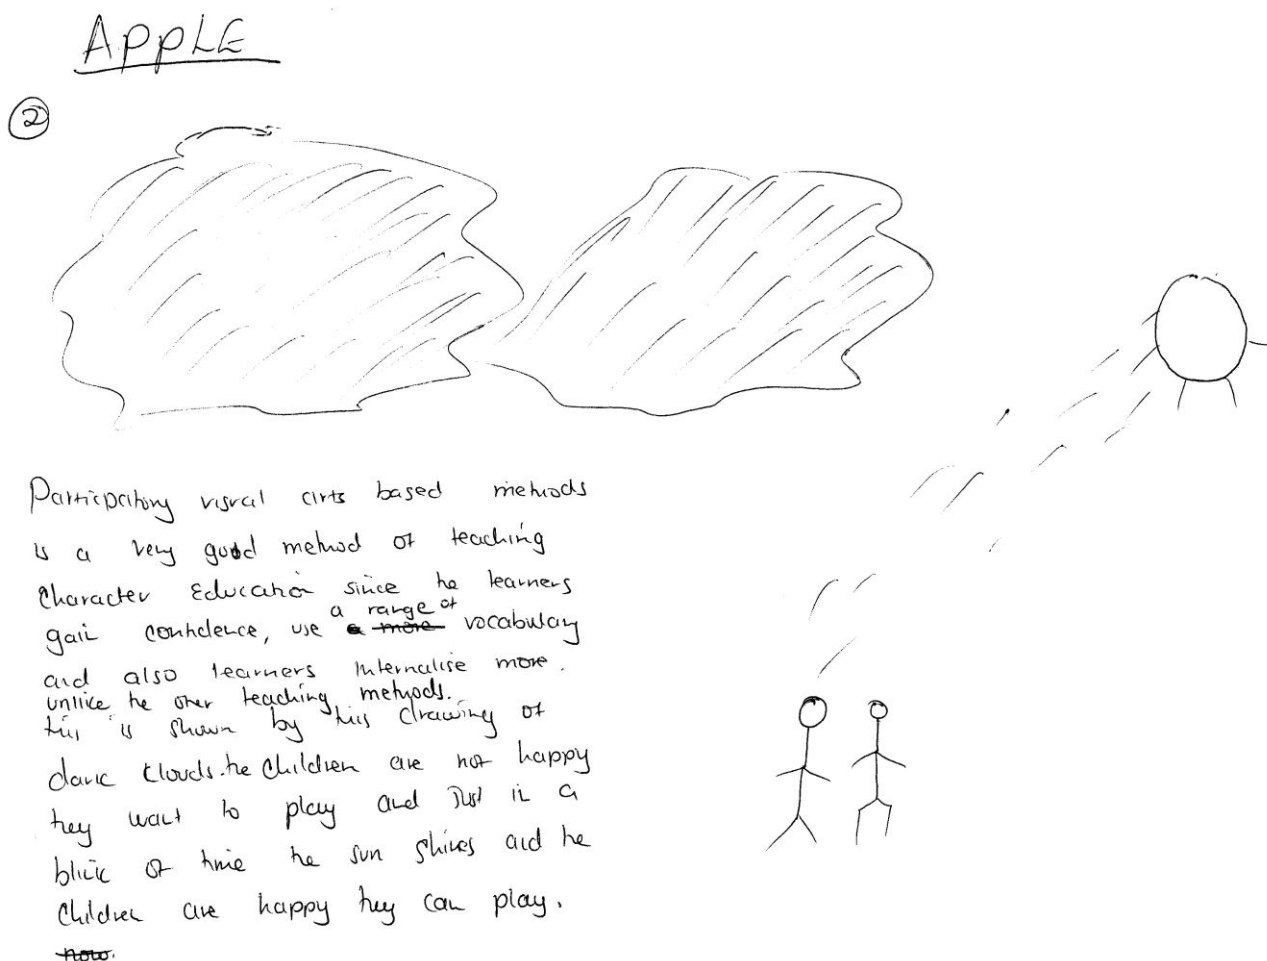 APPLE
2
Participatory visual arts based methods
is a very good method of teaching
Character Education since he learners
gain confidence, use a range of vocabulary
and also learners internalise more.
unlike he other teaching methods.
this is shown by this drawing of
dark clouds. he children are not happy
they want to play and Just in a
blink of time he sun shines and he
children are happy they can play.
now.